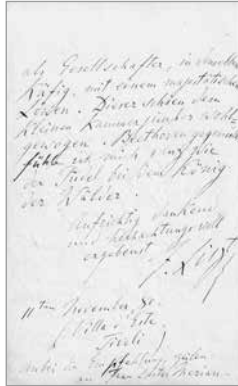 als Gesellschafter, in demselben
Käfig, mit einem majestätischen
Löwen. Dieser schien dem
kleinen Kammerjunker wohl
gewogen. Beethoven gegenüber
fühle ich mich ganz wie
der bei dem König
der Wälder.
Aufrichtig dankend
und hochachtungsvoll
ergebenst
F. Liszt
11ten November, 80
(Villa d'Este,
Tivoli)